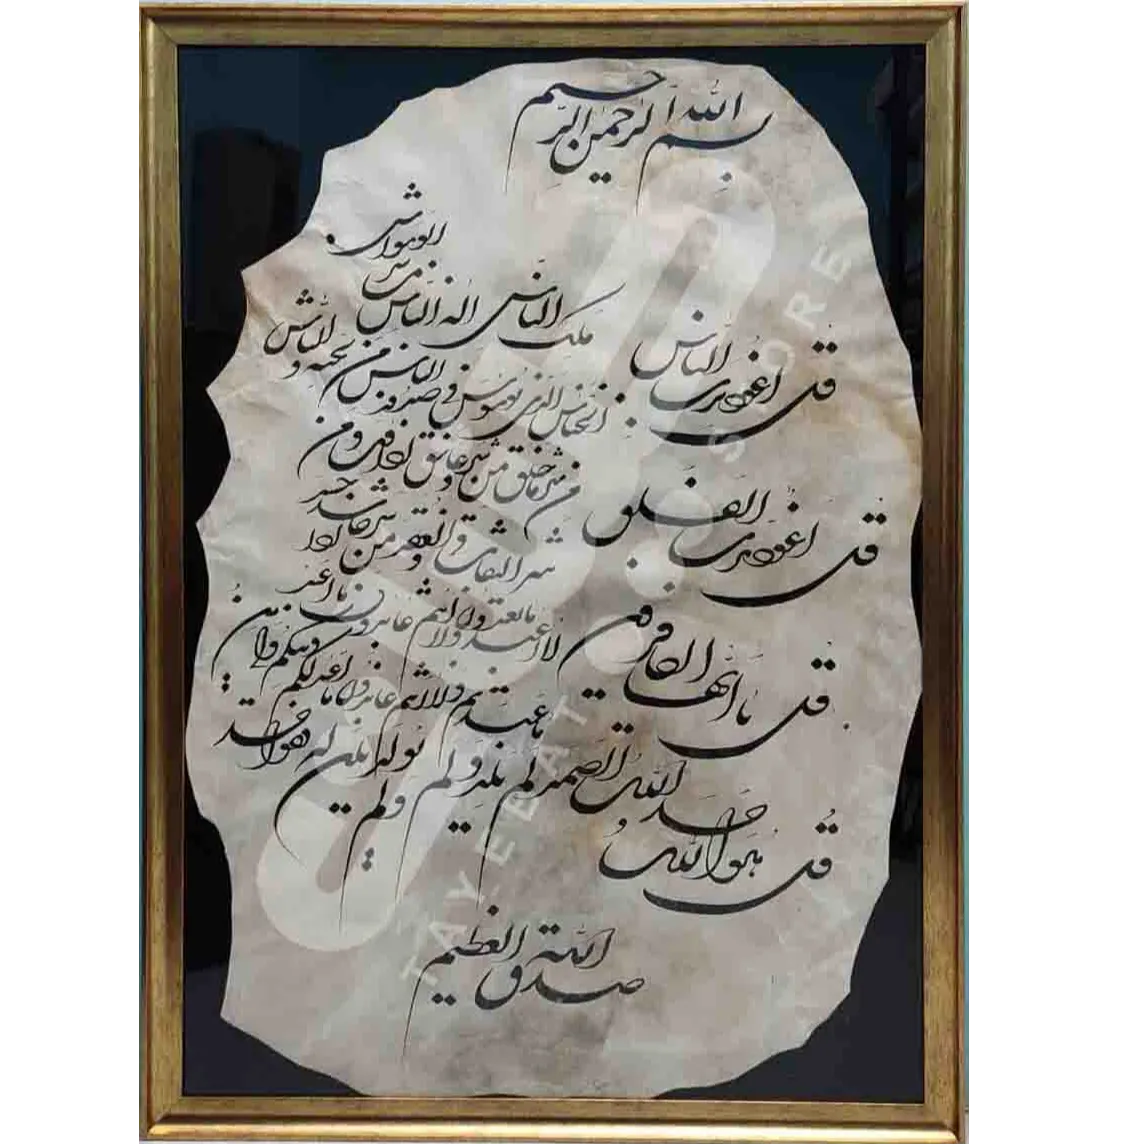 بسم الله الرحمن الرحیم
قل اعوذ برب الناس
ملک الناس اله الناس من شر الوسواس
الخناس الذی یوسوس فی صدور الناس من الجنه و الناس
قل اعوذ برب الفلق
من شر ما خلق و من شر غاسق اذا وقب و من
شر النفاثات فی العقد و من شر حاسد اذا حسد
قل یا ایها الکافرون
لا اعبد ما تعبدون و لا انتم عابدون ما اعبد
و لا انا عابد ما عبدتم و لا انتم عابدون ما اعبد لکم دینکم ولی دین
قل هو الله احد
الله الصمد لم یلد و لم یولد و لم یکن له کفوا احد
صدق الله العظیم